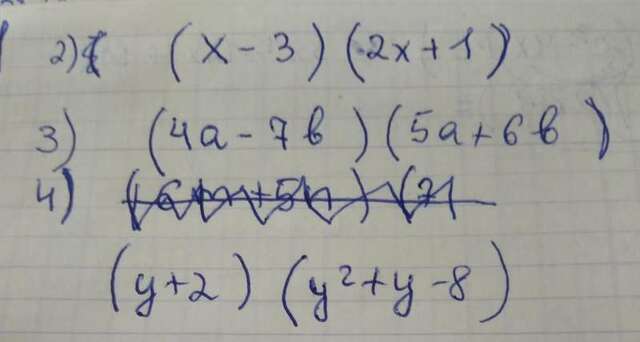 2) (x-3)(2x+1)
3) (4a-7b)(5a+6b)
4)
(y+2)(y²+y-8)